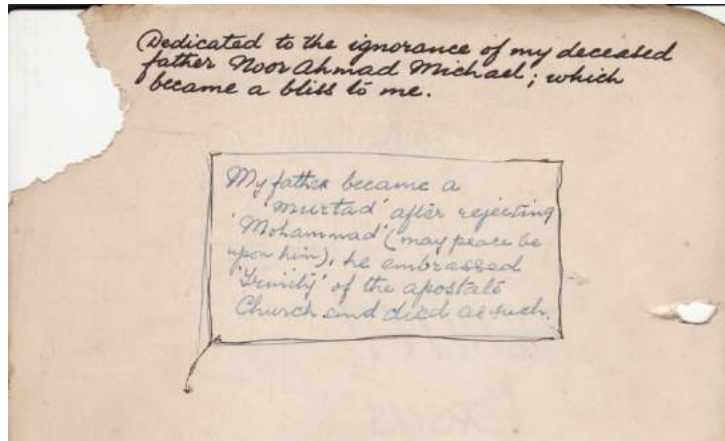 Dedicated to the ignorance of my deceased
father Noor Ahmad Michael; which
became a bliss to me.
My father became a
'murtad' after rejecting
'Mohammad' (may peace be
upon him), he embrassed
'Trinity' of the apostate
Church and died as such.